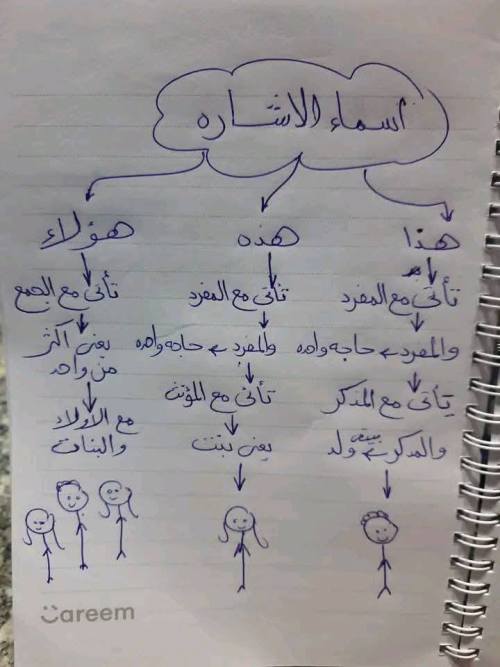 أسماء الاشاره
هذا
تأتى مع المفرد
والمفرد حاجه واحده
يأتى مع المذكر
والمذكر يعنى ولد
هذه
تأتى مع المفرد
والمفرد حاجه واحده
تأتى مع المؤنث
يعنى بنت
هؤلاء
تأتى مع الجمع
يعنى اكثر
من واحد
مع الأولاد
والبنات
Careem